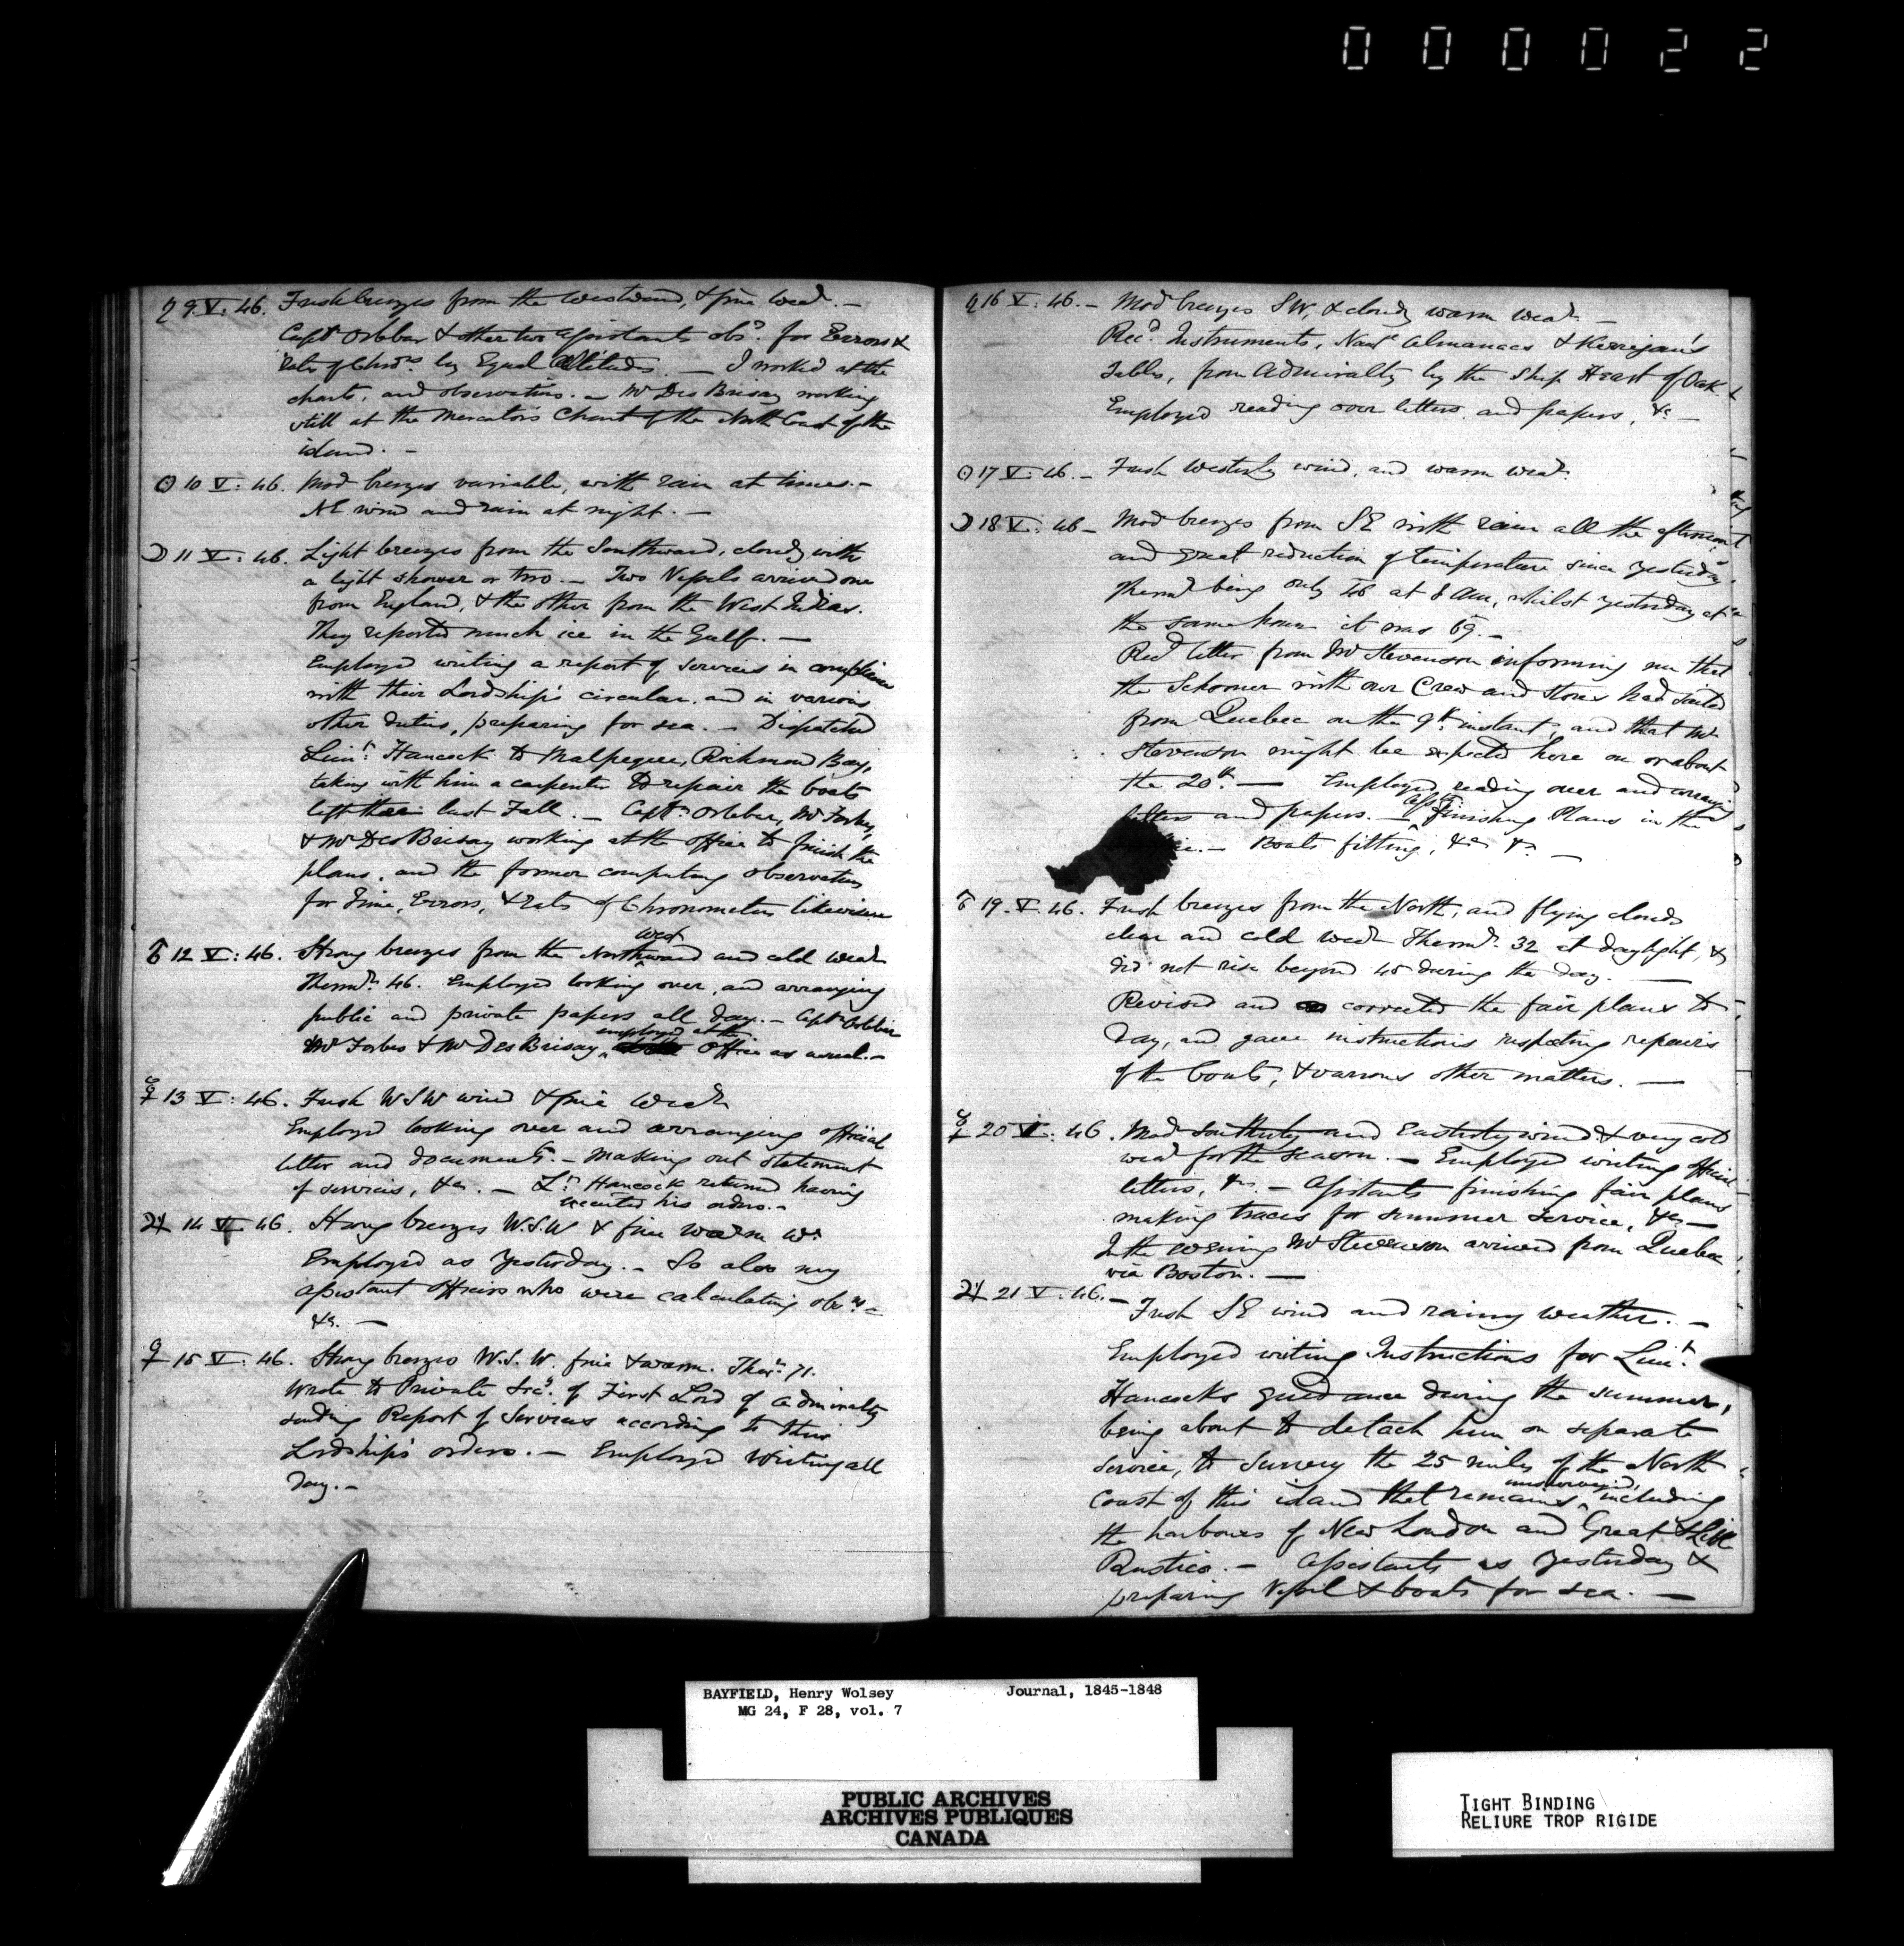 000022
♄ 9. V. 46. Fresh breezes from the Westward, & fine Weat.r –
Capt.n Orlebar & other two assistants obs.d for Errors &
rates of Chro.rs by Equal Altitudes. – I worked at the
charts, and observations. – Mr Des Brisay working
still at the Mercator's Chart of the North Coast of the
island. –
☉ 10 V: 46. Mod breezes variable, with rain at times. –
NE wind and rain at night. –
☽ 11 V: 46. Light breezes from the Southward, cloudy with
a light shower or two. – Two Vessels arrived one
from England, & the other from the West Indies.
They reported much ice in the Gulf. –
Employed writing a report of services in compliance
with their Lordship's circular, and in various
other duties, preparing for sea. – Dispatched
Lieu.t Hancock to Malpeque, Richmond Bay,
taking with him a carpenter to repair the boats
left there last Fall. – Capt.n Orlebar, Mr Forbes,
& Mr Des Brisay working at the office to finish the
plans, and the former computing observations
for Time, Errors, & rates of Chronometers likewise
♂ 12 V: 46. Strong breezes from the Northwestward and cold Weat.r
Therm.r 46. Employed looking over, and arranging
public and private papers all day. – Capt.n Orlebar
Mr Forbes & Mr Des Brisay employed at the Office as usual. –
☿ 13 V: 46. Fresh WSW wind & fine Weat.r
Employed looking over and arranging official
letter and documents. – Making out statement
of services, &c. – L.t Hancock returned having
executed his orders. –
♃ 14 V: 46. Strong breezes W.S.W & fine warm W.r
Employed as yesterday. – So also my
assistant officers who were calculating obs.ns
&c. –
♀ 15 V: 46. Strong breezes W.S.W. fine & warm. Ther.r 71.
Wrote to Private Sec.y of First Lord of Admiralty
sending Report of Services according to their
Lordship's orders. – Employed Writing all
day. –
♄ 16 V: 46. – Mod breezes SW, & cloudy warm weat.r –
Rec.d Instruments, Naut.l Almanacs & Kerrigan's
Tables, from Admiralty by the Ship Heart of Oak.
Employed reading over letters and papers, &c –
☉ 17 V: 46. – Fresh Westerly wind, and warm weat.r
☽ 18 V: 46 – Mod breezes from SE with rain all the afternoon
and great reduction of temperature since yesterday,
Therm.r being only 46 at 8 AM, whilst yesterday at
the same hour it was 69. –
Rec.d letter from Mr Stevenson informing me that
the Schooner with our Crew and stores had sailed
from Quebec on the 9th instant, and that Mr
Stevenson might be expected here on or about
the 20th – Employed reading over and arranging
letters and papers. – Ass.ts finishing Plans in the
– Boats fitting, &c &c –
♂ 19. V. 46. Fresh breezes from the North, and flying clouds
clear and cold Weat.r Therm.r 32 at daylight, &
did not rise beyond 45 during the day. –
Revised and corrected the fair plans to
day, and gave instructions respecting repairs
of the boats, & various other matters. –
☿ 20 V: 46. Mod Southerly and Easterly wind & very cold
weat.r for the season. – Employed writing official
letters, &c. – Assistants finishing fair plans
making traces for summer service, &c –
In the evening Mr Stevenson arrived from Quebec
via Boston. –
♃ 21 V: 46. – Fresh SE wind and rainy weather. –
Employed writing Instructions for Lieu.t
Hancocks guidance during the summer,
being about to detach him on separate
service, to survey the 25 miles of the North
Coast of this island that remains unsurveyed, including
the harbours of New London and Great & Little
Rustico. – Assistants as yesterday &
preparing Vessel & boats for sea. –
BAYFIELD, Henry Wolsey Journal, 1845-1848
MG 24, F 28, vol. 7
PUBLIC ARCHIVES
ARCHIVES PUBLIQUES
CANADA
TIGHT BINDING
RELIURE TROP RIGIDE